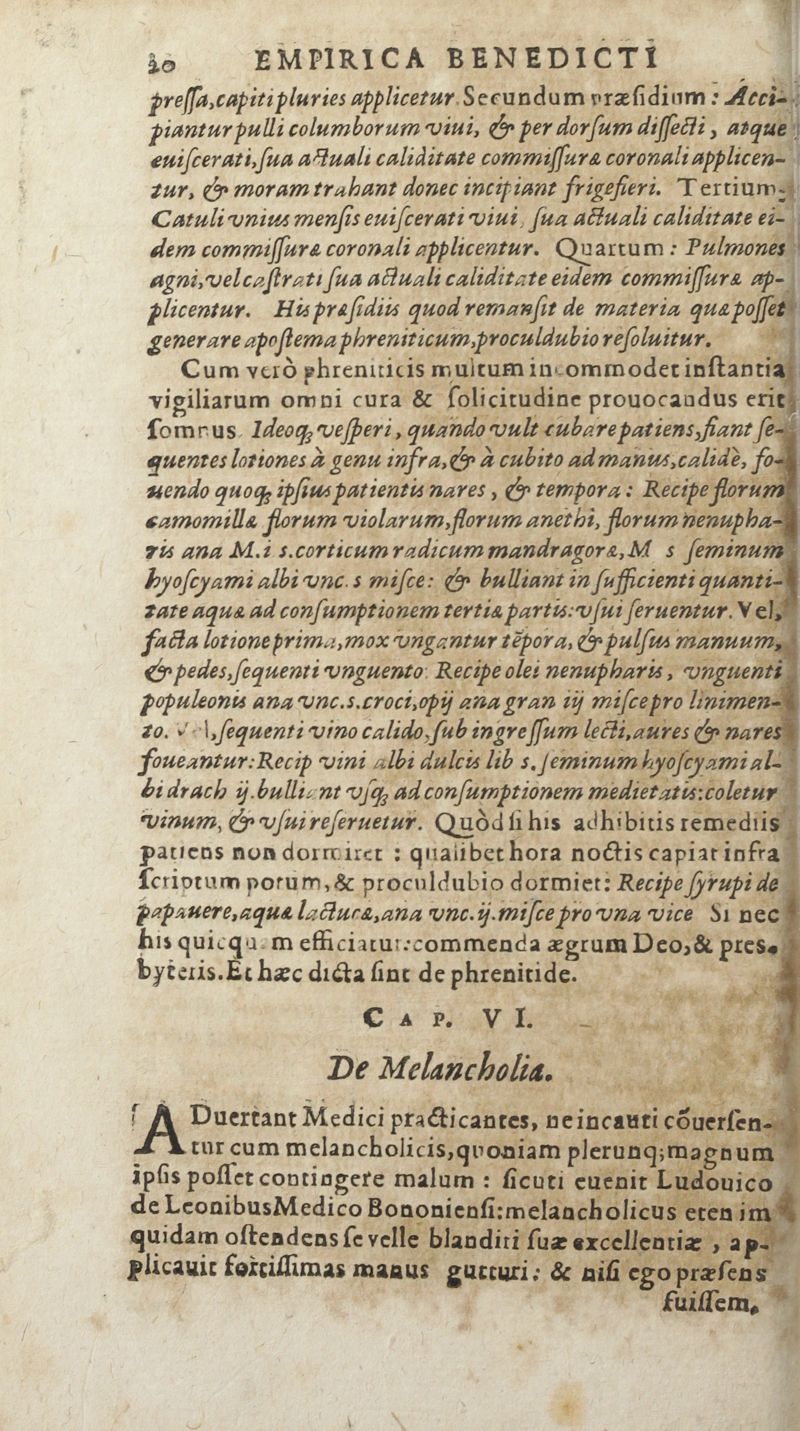 20 EMPIRICA BENEDICTI
pressa,capiti pluries applicetur. Secundum præsidium : Acci-
piantur pulli columborum viui, & per dorsum dissecti, atque
euiscerati,sua actuali caliditate commissuræ coronali applicen-
tur, & moram trahant donec incipiant frigefieri. Tertium.
Catuli vnius mensis euiscerati viui, sua actuali caliditate ei-
dem commissuræ coronali applicentur. Quartum : Pulmones
agni,vel castrati sua actuali caliditate eidem commissuræ ap-
plicentur. His præsidiis quod remansit de materia quæ posset
generare apostema phreniticum,proculdubio resoluitur.
Cum verò phreniticis multum incommodet instantia
vigiliarum omni cura & solicitudine prouocandus erit
somnus. Ideoq; vesperi, quando vult cubare patiens,fiant se-
quentes lotiones à genu infra,& à cubito ad manus,calidè, fo-
uendo quoq; ipsius patientis nares, & tempora : Recipe florum
camomillæ florum violarum,florum anethi, florum nenupha-
ris ana M.i s.corticum radicum mandragoræ,M s seminum
hyoscyami albi vnc. s misce: & bulliant in sufficienti quanti-
tate aquæ ad consumptionem tertiæ partis:vsui seruentur. Vel,
facta lotione prima,mox vngantur tēpora, & pulsus manuum,
& pedes,sequenti vnguento: Recipe olei nenupharis, vnguenti
populeonis ana vnc.s.croci,opij ana gran iij misce pro linimen-
to. Vel,sequenti vino calido,sub ingressum lecti,aures & nares
foueantur:Recip vini albi dulcis lib s.seminum hyoscyami al-
bi drach ij.bulliant vsq; ad consumptionem medietatis:coletur
vinum, & vsui reseruetur. Quòd si his adhibitis remediis
patiens non dormiret : qualibet hora noctis capiat infra
scriptum potum,& proculdubio dormiet: Recipe syrupi de
papauere,aquæ lactucæ,ana vnc.ij.misce pro vna vice Si nec
his quicquam efficiatur:commenda ægrum Deo,& pres-
byteris.Et hæc dicta sint de phrenitide.
CAP. VI.
De Melancholia.
ADuertant Medici practicantes, ne incauti cōuersen-
tur cum melancholicis,quoniam plerunq;magnum
ipsis posset contingere malum : sicuti euenit Ludouico
de LeonibusMedico Bononiensi:melancholicus etenim
quidam ostendens se velle blandiri suæ excellentiæ , ap-
plicauit fortissimas manus gutturi: & nisi ego præsens
fuissem,